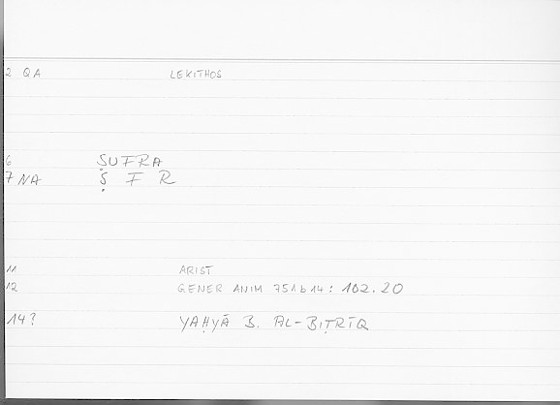 2 QA LEKITHOS
6 ṢUFRA
7 NA Ṣ F R
11 ARIST
12 GENER ANIM 751b14: 102.20
14? YAḤYĀ B. AL-BIṬRĪQ